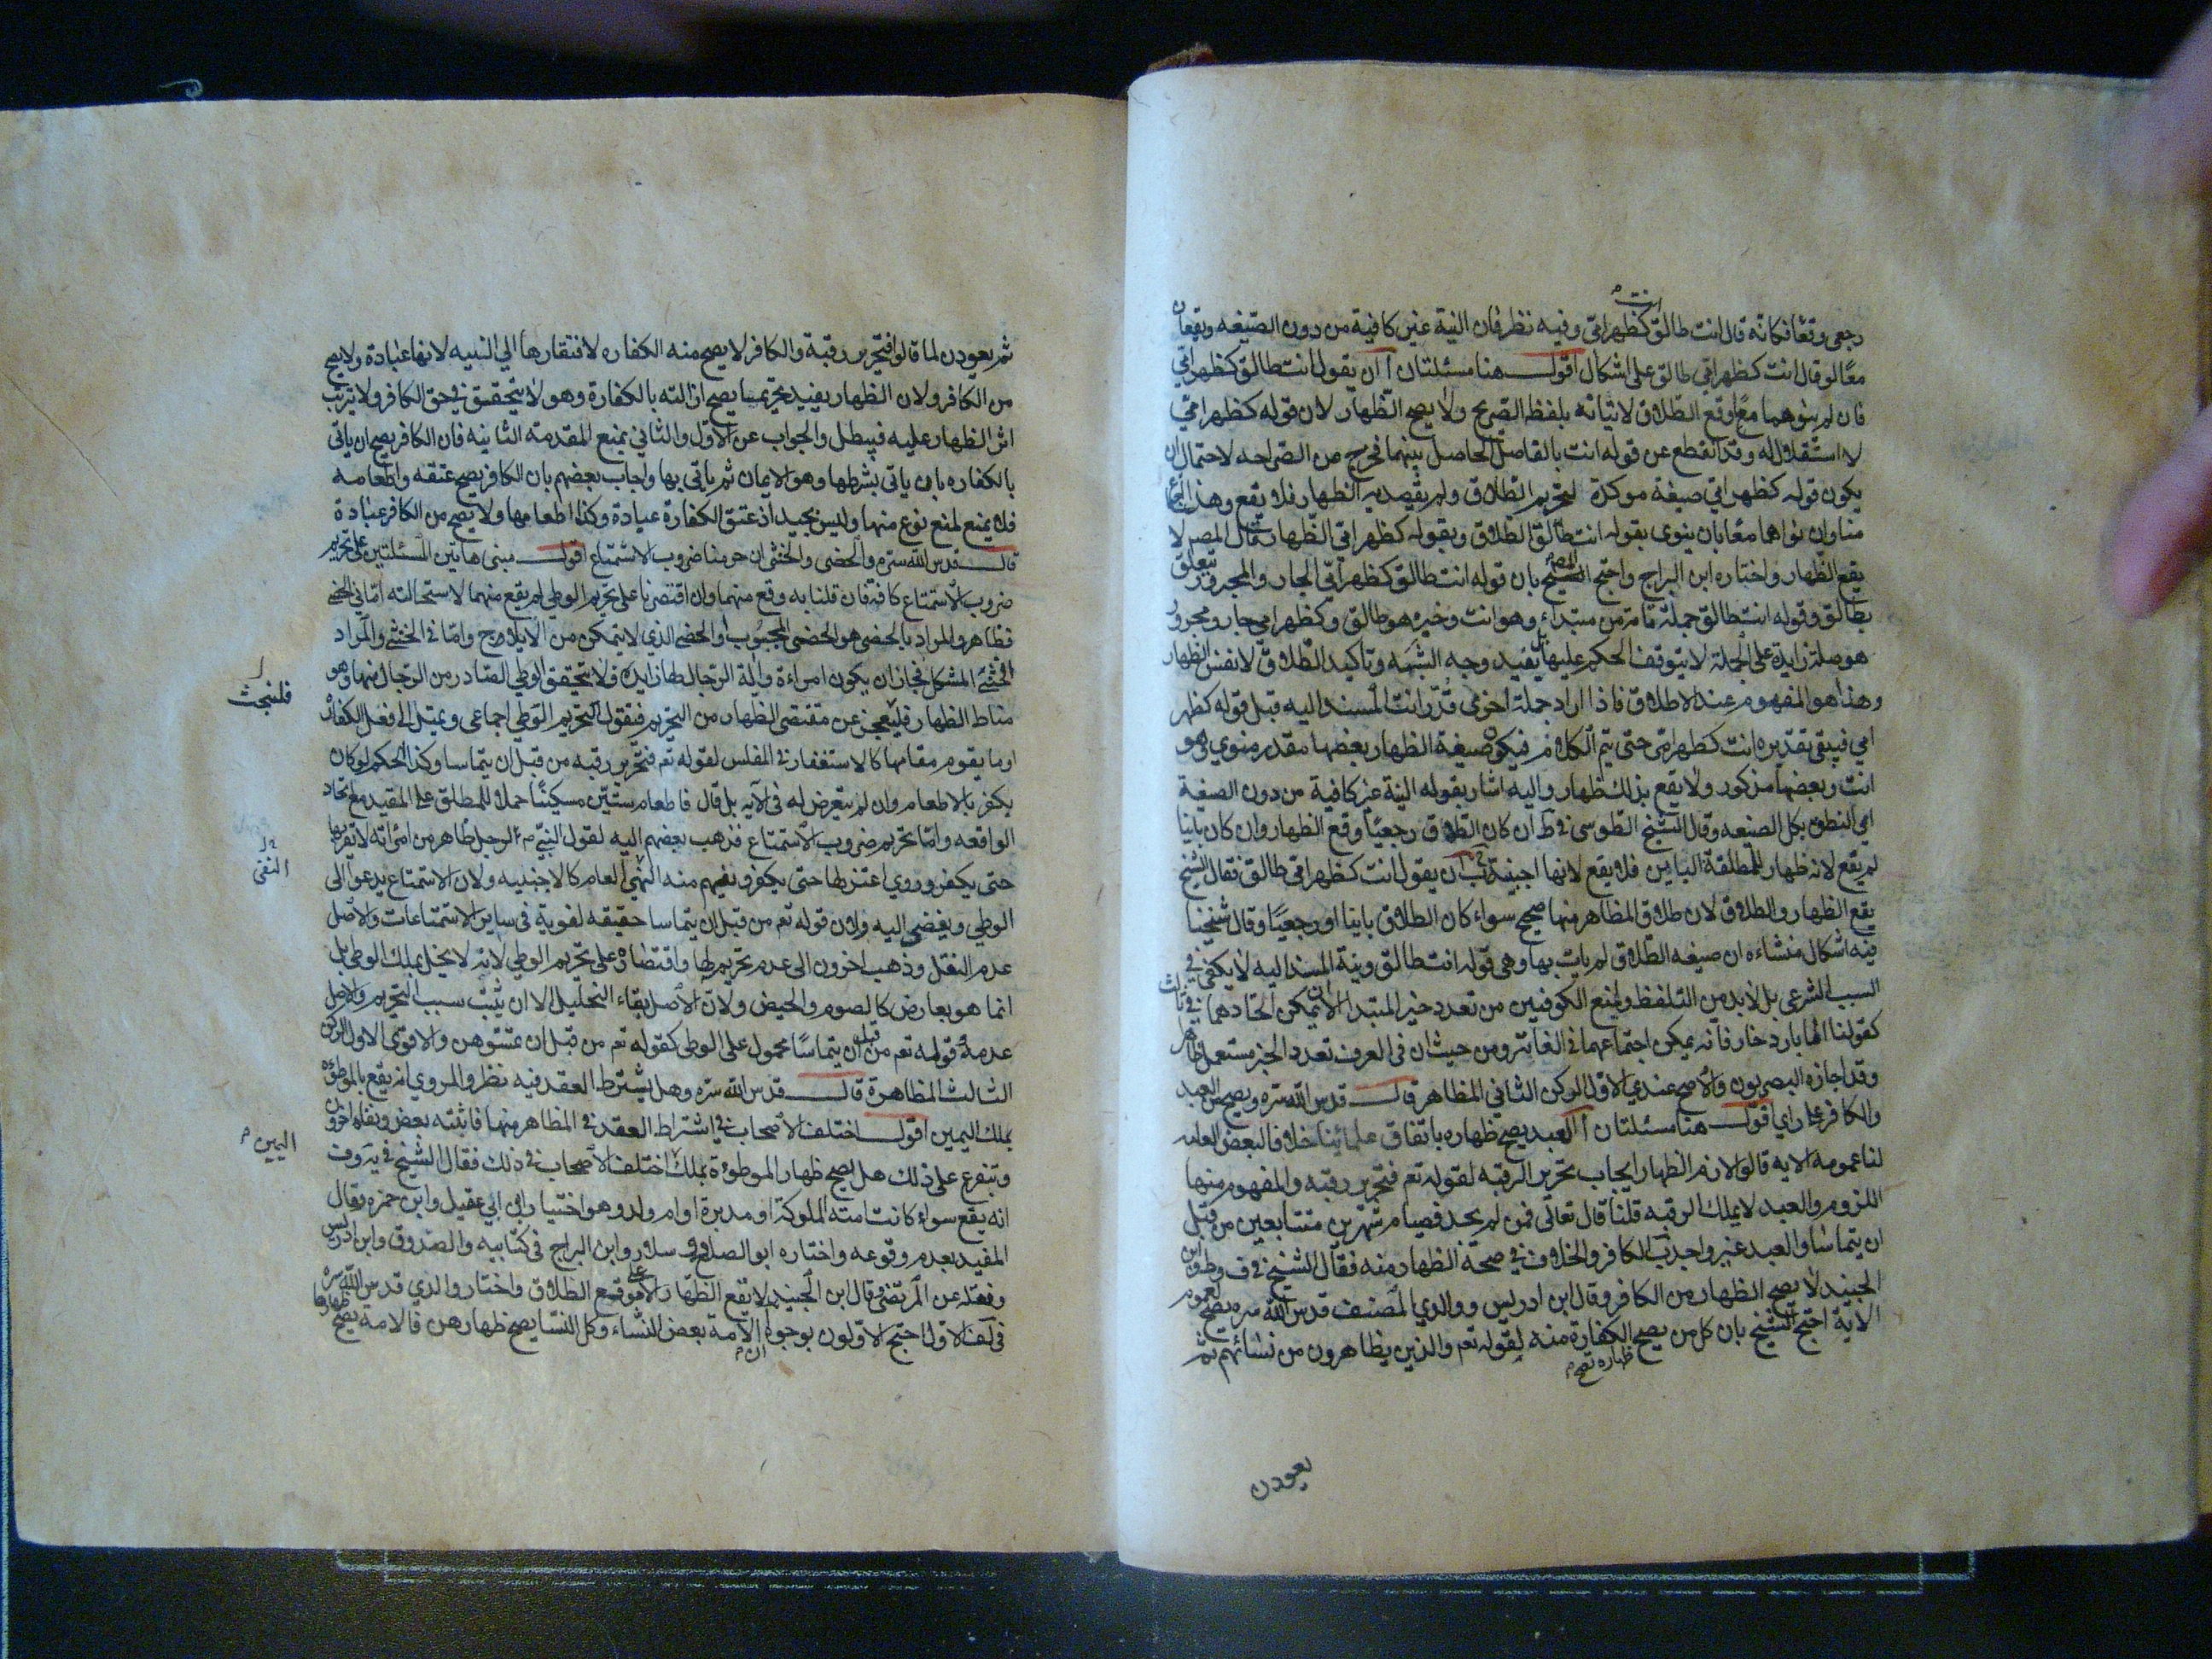 رجعي وقعا فكانه قال انت طالق انت كظهر امي وفيه نظر فان النية غير كافية من دون الصيغه ويقعان
معًا لو قال انت كظهر امي طالق على اشكال اقول هنا مسئلتان آ ان يقول انت طالق كظهر امي
فان لم ينوهما معًا وقع الطلاق لاتيانه بلفظه الصريح ولا يصح الظهار لان قوله كظهر امي
لا استقلال له وقد انقطع عن قوله انت بالفاصل الحاصل بينهما فخرج من الصراحه لاحتمال ان
يكون قوله كظهر امي صيغة موكدة لتحريم الطلاق ولم يقصد به الظهار فلا يقع وهذا
منا وان نواهما معًا بان ينوى بقوله انت طالق الطلاق وبقوله كظهر امي الظهار قال المصر لا
يقع الظهار واختاره ابن البراج واحتج المص بان قوله انت طالق كظهر امي الجار والمجرور يتعلق
بطالق وقوله انت طالق جملة تامة من مبتداء وهو انت وخبره هو طالق وكظهر امي جار ومجرور
هو صلة زايدة على الجملة لا يتوقف الحكم عليها بل يفيد وجه الشبه وتاكيد الطلاق لا نفس الظهار
وهذا هو المفهوم عند الاطلاق فاذا اراد جملة اخرى قدر انت المسند اليه قبل قوله كظهر
امي فيبقى تقديره انت كظهر امي حتى يتم الكلام فيكون صيغة الظهار بعضها مقدر منوي وهو
انت وبعضها مذكور ولا يقع بذلك ظهار واليه اشار بقوله النية غير كافية من دون الصيغة
اي النطق بكل الصيغه وقال الشيخ الطوسى في ط ان كان الطلاق رجعيًا وقع الظهار وان كان باينا
لم يقع لانه ظهار للمطلقة الباين فلا يقع لانها اجنبية ب ان يقول انت كظهر امي طالق فقال الشيخ
يقع الظهار والطلاق لان طلاق المظاهر منها صحيح سواء كان الطلاق باينا او رجعيًا وقال شيخنا
فيه اشكال منشاءه ان صيغه الطلاق لم يات بها وهى قوله انت طالق ونية المسند اليه لا يكفى في
السبب الشرعى بل لا بد من التلفظ ولمنع الكوفيين من تعدد خبر المبتدا الا ان يمكن اتحادهما في ثالث
كقولنا الما بارد حار فانه يمكن اجتماعهما في الفاتر ومن حيث ان في العرف تعدد الخبر مستعمل ظاهر
وقد اجازه البصريون والاصح عندي الاول الركن الثاني المظاهر قال قدس الله سره ويصح من العبد
والكافر على راى اقول هنا مسئلتان آ العبد يصح ظهاره باتفاق علمائنا خلافا لبعض العامه
لنا عمومه الايه قالوا لازم الظهار ايجاب تحرير الرقبه لقوله تعم فتحرير رقبه والمفهوم منها
اللزوم والعبد لا يملك الرقبه قلنا قال تعالى فمن لم يجد فصيام شهرين متتابعين من قبل
ان يتماسا والعبد غير واجد ب الكافر والخلاف في صحة الظهار منه فقال الشيخ في ف وط وابن
الجنيد لا يصح الظهار من الكافر وقال ابن ادريس ووالدي المصنف قدس الله سره يصح لعموم
الاية احتج الشيخ بان كل من يصح ظهاره تصح الكفارة منه لقوله تعم والذين يظاهرون من نسائهم ثم
يعودون
ثم يعودون لما قالوا فتحرير رقبة والكافر لا يصح منه الكفاره لافتقارها الي النييه لانها عبادة ولا يصح
من الكافر ولان الظهار يفيد تحريما يصح ازالته بالكفارة وهو لا يتحقق في حق الكافر ولا يترتب
اثر الظهار عليه فيبطل والجواب عن الاول والثاني بمنع المقدمة الثانيه فان الكافر يصح ان ياتى
بالكفاره بان ياتى بشرطها وهو الايمان ثم ياتي بها واجاب بعضهم بان الكافر يصح عتقه واطعامه
فلا يمنع لمنع نوع منها وليس بجيد اذ عتق الكفارة عبادة وكذا اطعامها ولا يصح من الكافر عبادة
قال قدس الله سره والخصى والخنثى ان حرمنا ضروب الاستمتاع اقول مبنى هاتين المسئلتين على تحريم
ضروب الاستمتاع كافة فان قلنا به وقع منهما وان اقتصرنا على تحريم الوطي لم يقع منهما لاستحالته اما في الخصي
فظاهر والمراد بالخصى هو الخصى المجبوب او الخصى الذي لا يتمكن من الايلاج واما في الخنثى والمراد
الخنثى المشكل فجاز ان يكون امراءة والة الرجال لها زايدة ولا يتحقق الوطي الصادر من الرجال منها وهو
مناط الظهار فليبحث عن مقتضى الظهار من التحريم فنقول التحريم الوطي اجماعى ويمتد الى فعل الكفارة
او ما يقوم مقامها كالاستغفار في المفلس لقوله تعم فتحرير رقبه من قبل ان يتماسا وكذا الحكم لو كان
يكفر بالاطعام وان لم يتعرض له في الآيه بل قال فاطعام ستين مسكينًا حملا للمطلق على المقيد مع اتحاد
الواقعه واما تحريم ضروب الاستمتاع فذهب بعضهم اليه لقول النبي م لرجل ظاهر من امراته لا تقربها
حتى يكفر وروي اعتزلها حتى يكفر ويفهم منه النهي العام كالاجنبيه ولان الاستمتاع يدعوا الى
الوطي ويفضي اليه ولان قوله تعم من قبل ان يتماسا حقيقه لغوية في ساير الاستمتاعات والاصل
عدم النقل وذهب اخرون الى عدم تحريم لها واقتضاره على تحريم الوطي لانه لا يخل بملك الوطي بل
انما هو بعارض كالصوم والحيض ولان الاصل بقاء التحليل الا ان يثبت سبب التحريم والاصل
عدمه وقوله تعم من قبل ان يتماسا محمول على الوطى كقوله تعم من قبل ان تمسوهن والاقوى الاول الركن
الثالث المظاهرة قال قدس الله سره وهل يشترط العقد فيه نظر والمروي انه يقع بالموطوءه
بملك اليمين اقول اختلف الاصحاب في اشتراط العقد في المظاهر منها فاثبته بعض ونفاه اخرون
وتتفرع على ذلك هل يصح ظهار الموطوءة بملك اختلف الاصحاب في ذلك فقال الشيخ في يه وف
انه يقع سواء كانت امته المملوكة او مدبرة او ام ولد وهو اختيار ابن ابي عقيل وابن حمزه وقال
المفيد بعدم وقوعه واختاره ابو الصلاح وسلار وابن البراج في كتابيه والصدوق وابن ادريس
ونقله عن المرتضى وقال ابن الجنيد لا يقع الظهار الا على موقع الطلاق واختار والدي قدس الله سره
في لف الاول احتج الاولون بوجوه ان الامة بعض النساء وكل النسا يصح ظهارهن فالامة يصح ظهارها
فلنبحث
النفى
اليمين م